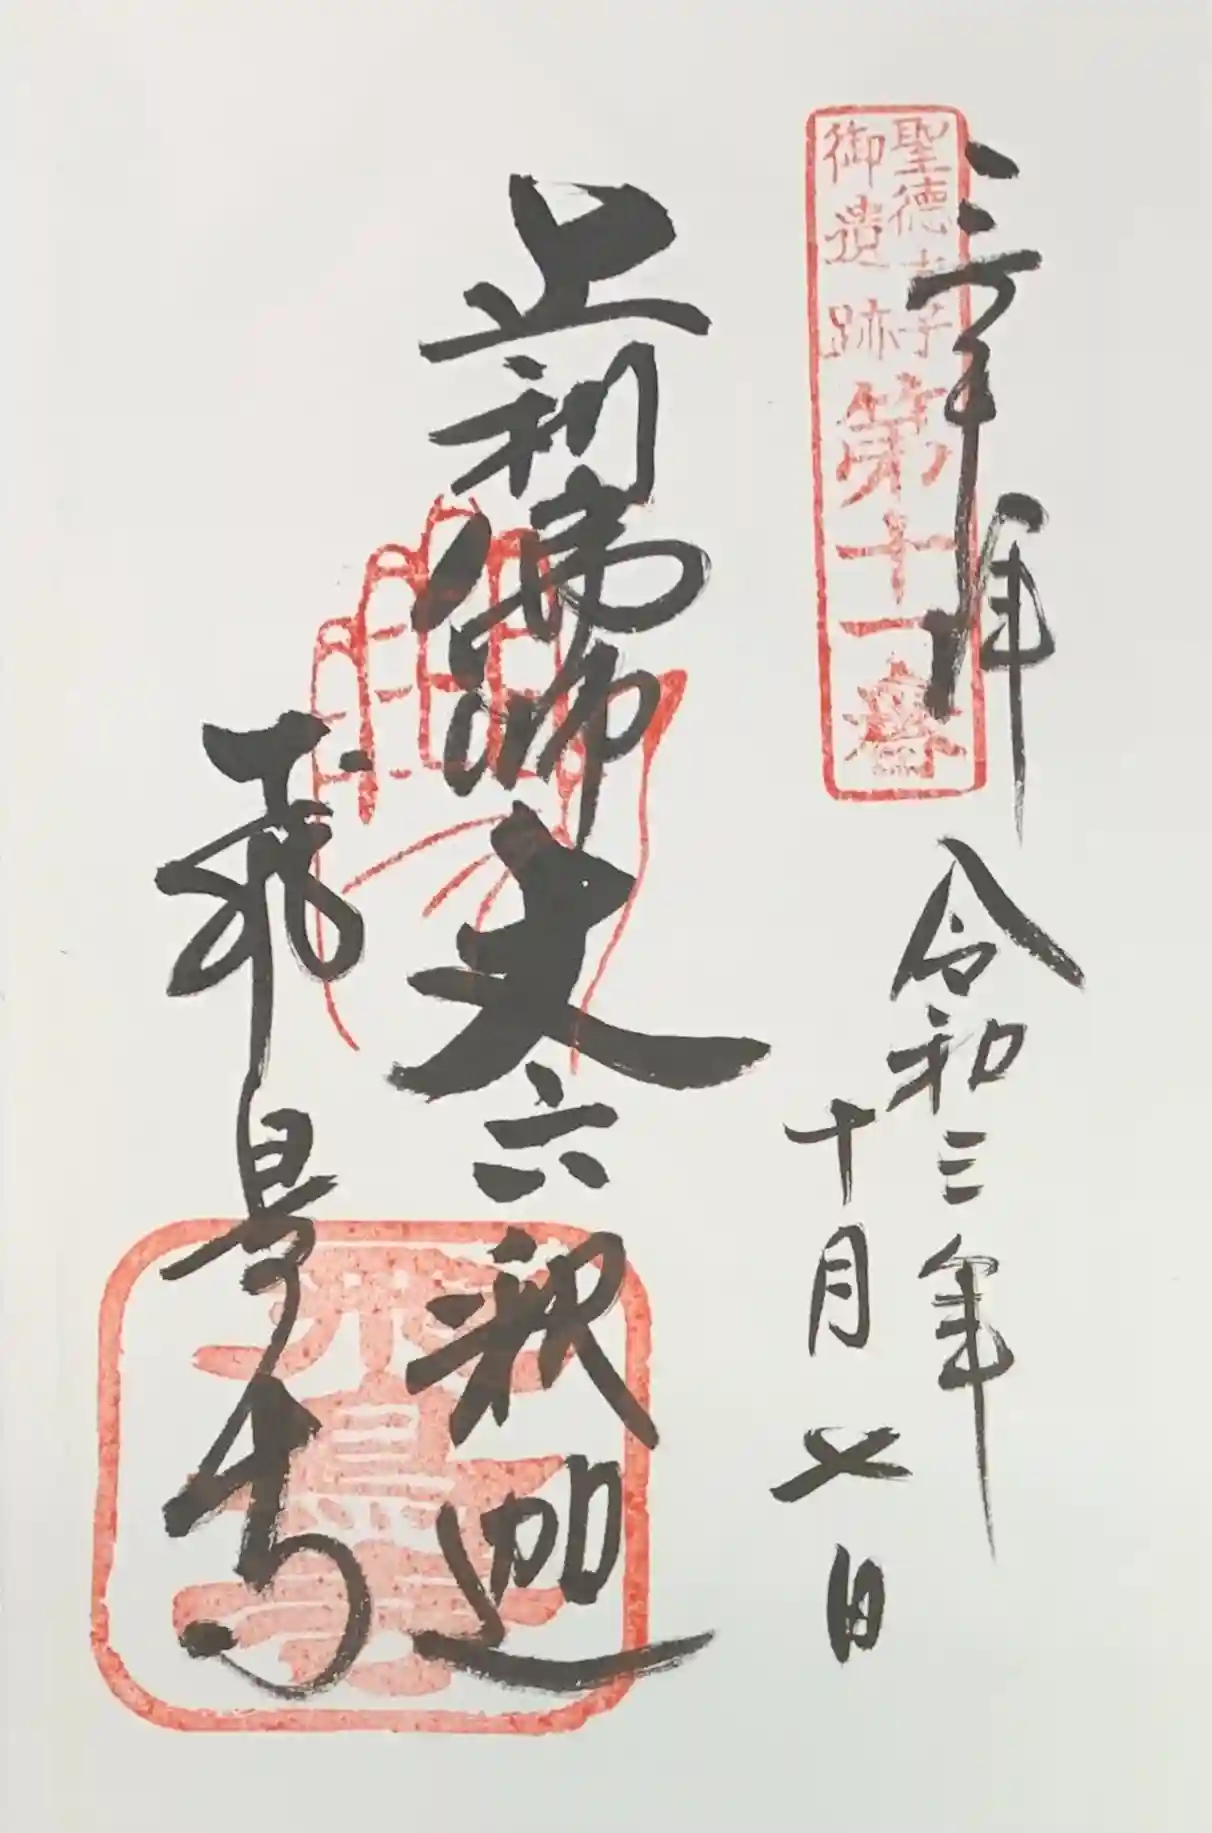 聖徳太子
御遺跡
第十一番
令和三年
十月七日
止利佛師丈六釈迦
飛鳥寺